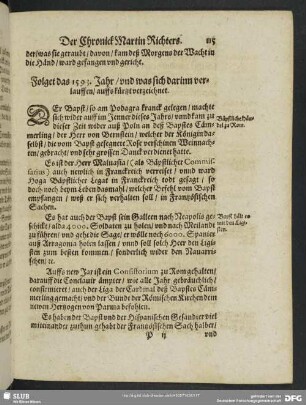 Der Chronick Martin Richters. 115
der/ was sie geraubt/ davon/ kam deß Morgens der Wacht in
die Händ/ ward gefangen vnd gericht.
Folget das 1593. Jahr/ vnd was sich darinn ver-
lauffen/ auffs kürtzt verzeichnet.
DEr Bapst/ so am Podagra kranck gelegen/ machte
sich wider auff im Jenner dieses Jars/ vnnd kam zu
dieser Zeit wider auß Poln an deß Bapstes Cäm-
merling/ der Herr von Bernstein/ welcher der Königin da-
selbst/ die vom Bapst gesegnete Rose verschienen Weinnach-
ten/ gebracht/ vnd sehr grossen Danck verdienet hatte.
Bäpstliche Hän-
del zu Rom.
Es ist der Herr Malnasia (als Bäpstlicher Commis-
sarius) auch newlich in Franckreich verreiset/ vnd ward
Bäpstlicher Legat in Franckreich todt gesagt/ so
doch noch beym Leben dasmahl/ welcher Befehl vom Bapst
empfangen/ wes er sich verhalten soll/ in Frantzösischen
Sachen.
Es hat auch der Bapst sein Galleen nach Neapolis ge-
schickt/ alda 4000. Soldaten zu holen/ vnd nach Meiland
zu führen/ vnd gehet die Sage/ er wölle noch 6000. Spanier
auß Arragonia holen lassen/ vnnd soll solch Heer den Ligi-
sten zum besten kommen/ sonderlich wider den Navarri-
schen/ etc.
Bapst hält es
mit den Ligi-
sten.
Auffs new Jar ist ein Consistorium zu Rom gehalten/
darauff die Conclavit ämpter/ wie alle Jahr gebräuchlich/
confirmieret/ auch der Liga der Cardinal deß Bapstes Cäm-
merling gemacht/ vnd der Bunde der Römischen Kirchen dem
newen Hertzogen von Parma befohlen.
Es haben der Bapst vnd der Hispanischen Gesandter viel
miteinander zuthun gehabt der Frantzösischen Sach halber/
P ij vnd
SLUB
DFG